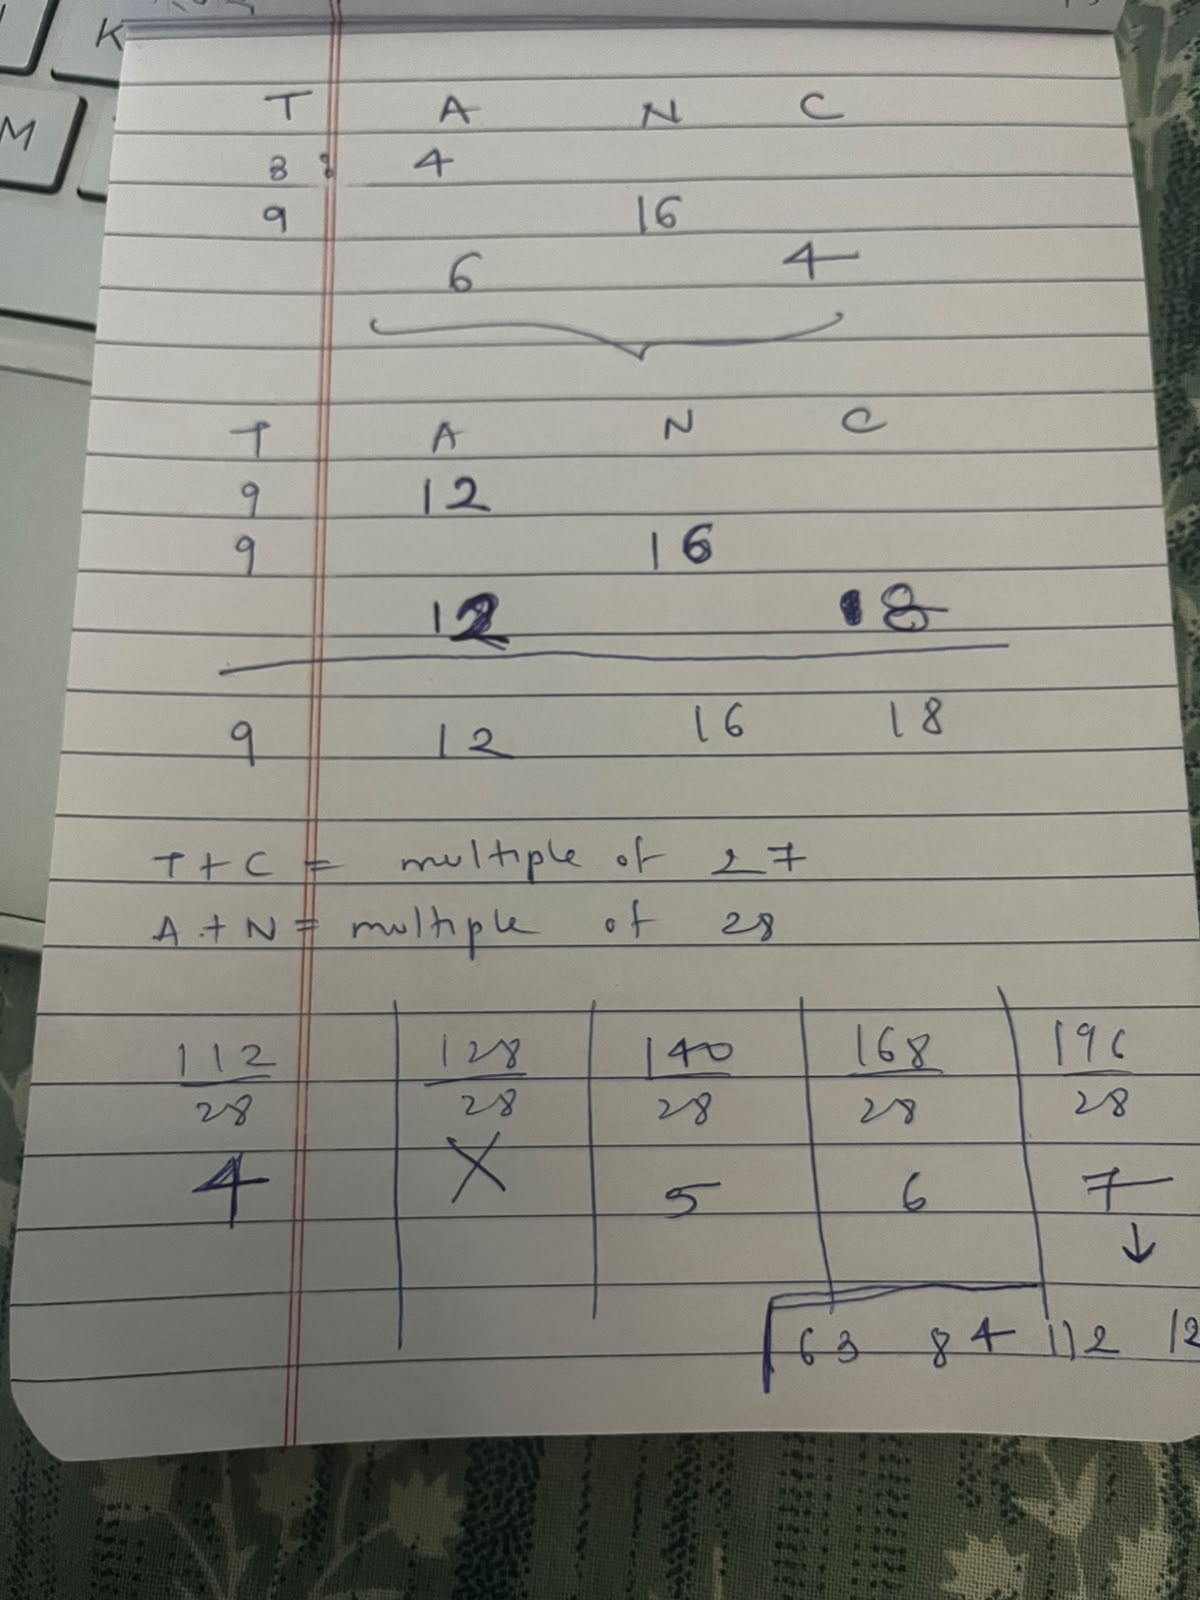 K
M
T A N C
3 : 4
9 16
6 4
T A N C
9 12
9 16
12 18
9 12 16 18
T + C = multiple of 27
A + N = multiple of 28
112 128 140 168 196
28 28 28 28 28
4 X 5 6 7
↓
63 84 112 12